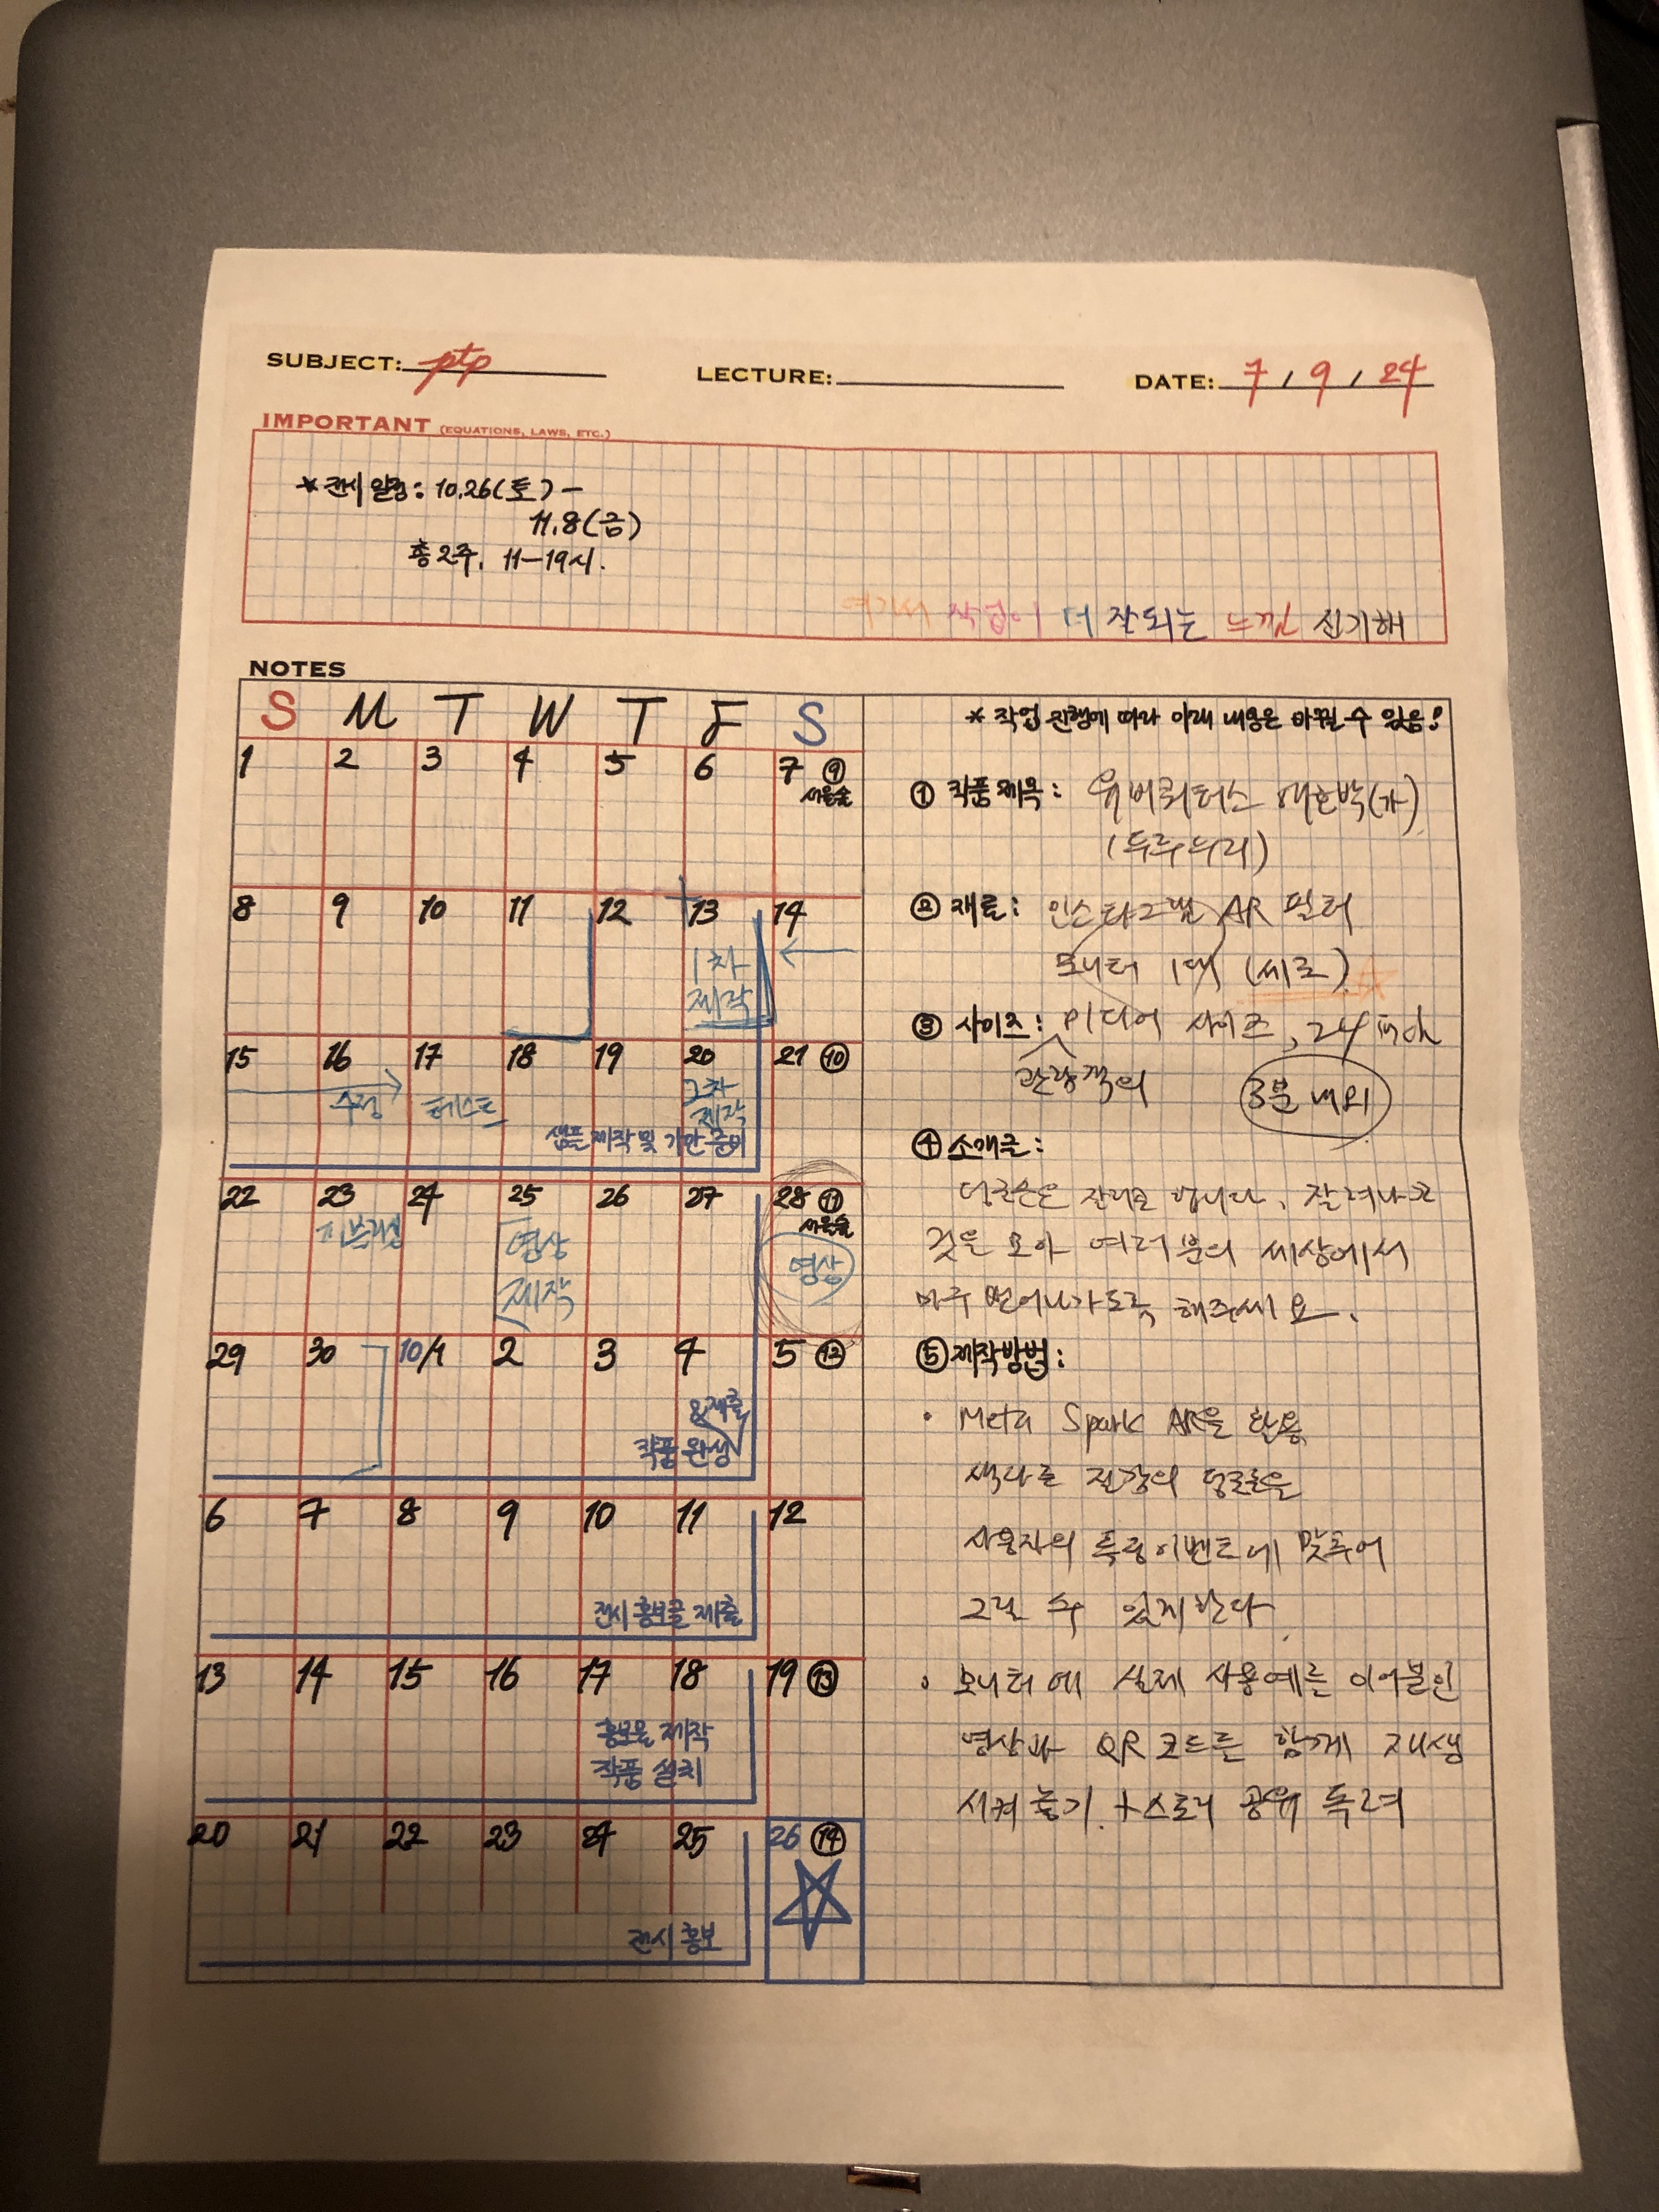 SUBJECT: ptp
LECTURE:
DATE: 7 / 9 / 24
IMPORTANT (EQUATIONS, LAWS, ETC.)
* 전시일정: 10.26(토) -
11.8(금)
총 2주. 11-19시.
여기서 작업이 더 잘되는 느낌 신기해
NOTES
S M T W T F S
1 2 3 4 5 6 7 ⑨
서울숲
8 9 10 11 12 13 14
1차
제작
15 16 17 18 19 20 21 ⑩
수정 테스트 2차
제작
샘플 제작 및 가안 준비
22 23 24 25 26 27 28 ⑪
서울숲
영상
제작
영상
29 30 10/1 2 3 4 5 ⑫
&제출
작품 완성
6 7 8 9 10 11 12
전시 홍보글 제출
13 14 15 16 17 18 19 ⑬
홍보물 제작
작품 설치
20 21 22 23 24 25 26 ⑭
전시 홍보
* 작업 진행에 따라 아래 내용은 바뀔 수 있음!
① 작품 제목: 유비쿼터스 (가)
② 재료: 인스타그램 AR 필터
모니터 1대 (세로)
③ 사이즈: 미디어 사이즈, 24 inch
관람객의
3분 내외
④ 소개글:
덩굴손은 입니다.
것을 모아 여러분의 세상에서
마구 뻗어나가도록 해주세요.
⑤ 제작방법:
• Meta Spark AR을 활용
색다른 질감의 덩굴손을
사용자의 특정 이벤트에 맞추어
그릴 수 있게 한다.
• 모니터에 실제 사용 예를 이어붙인
영상과 QR코드를 함께 재생
시켜 놓기. +스토리 공유 독려